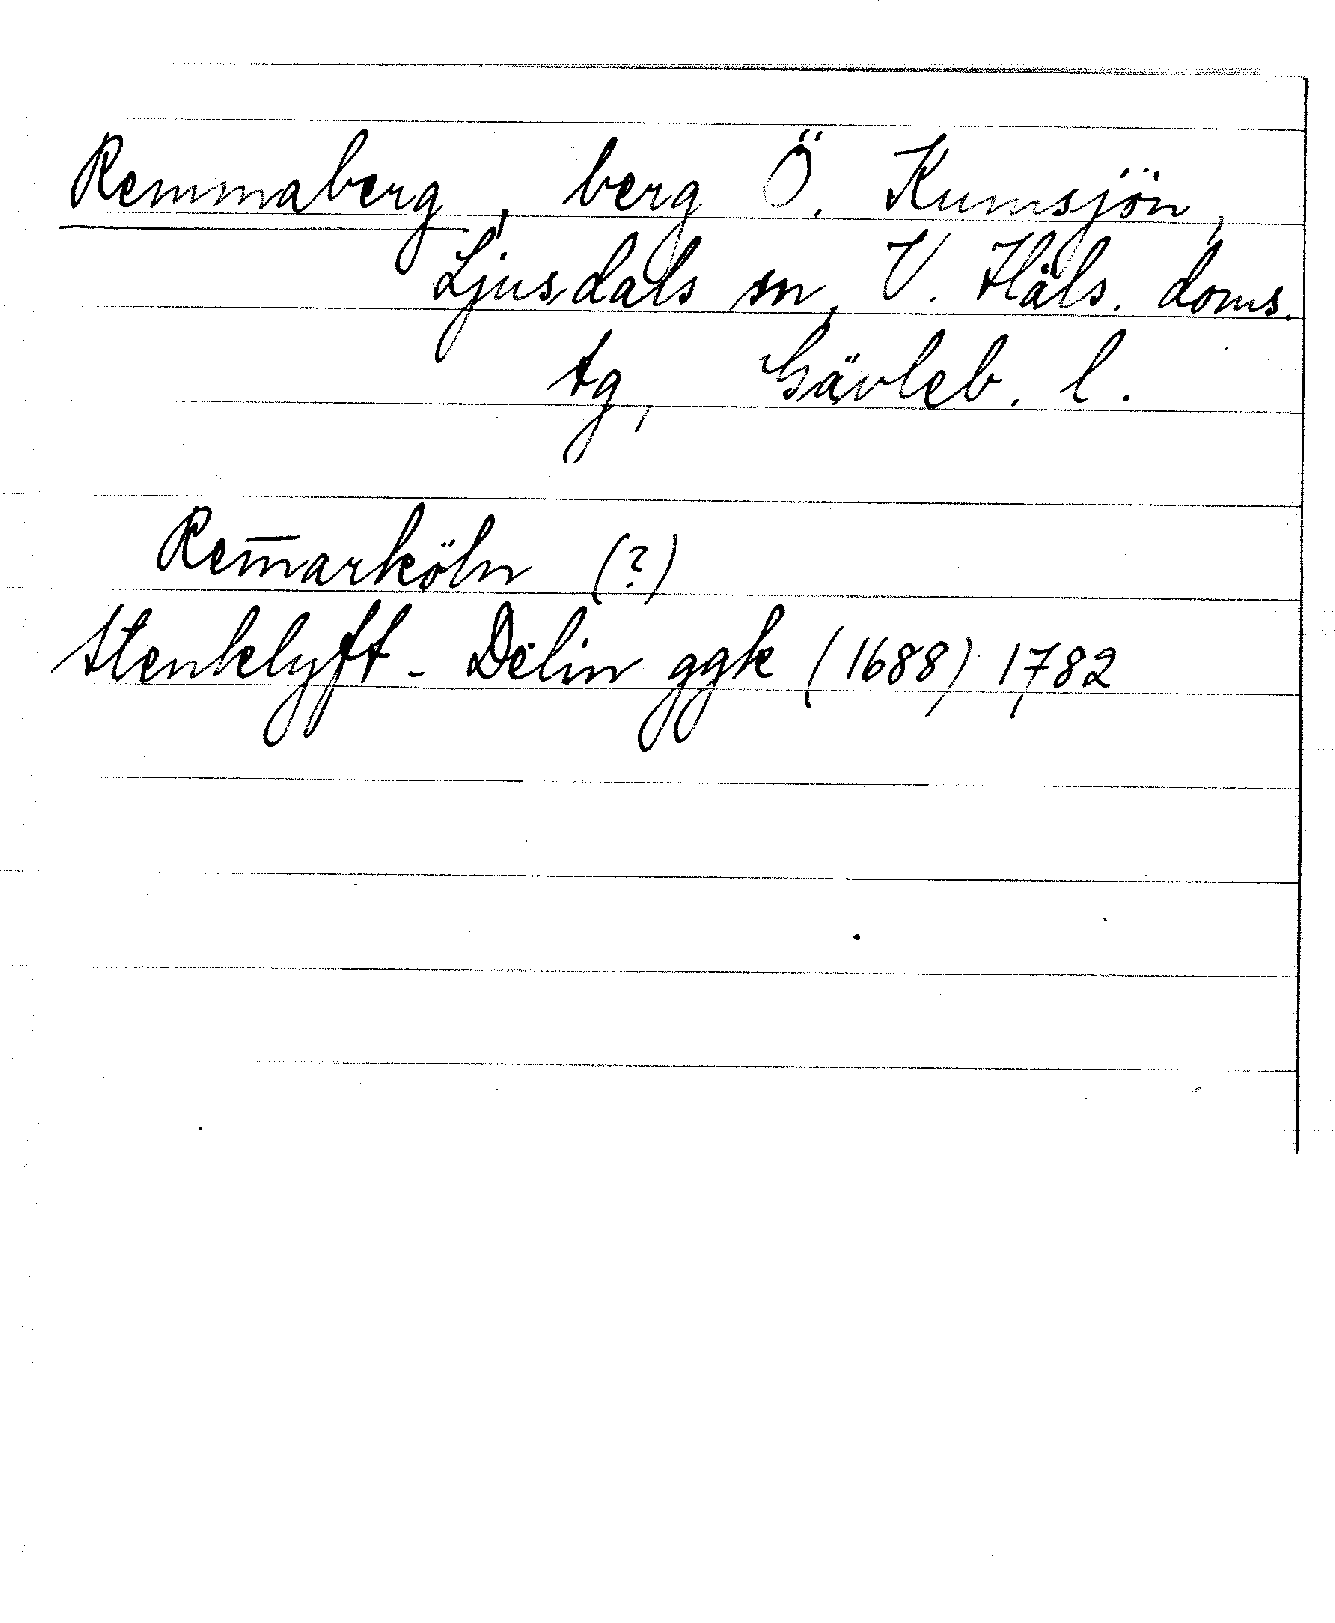 Remmaberg, berg Ö. Kumsjön,
Ljusdals sn, V. Häls. doms.
tg, Gävleb. l.
Rem̅arköln (?)
Stenklyft - Delin ggk (1688) 1782